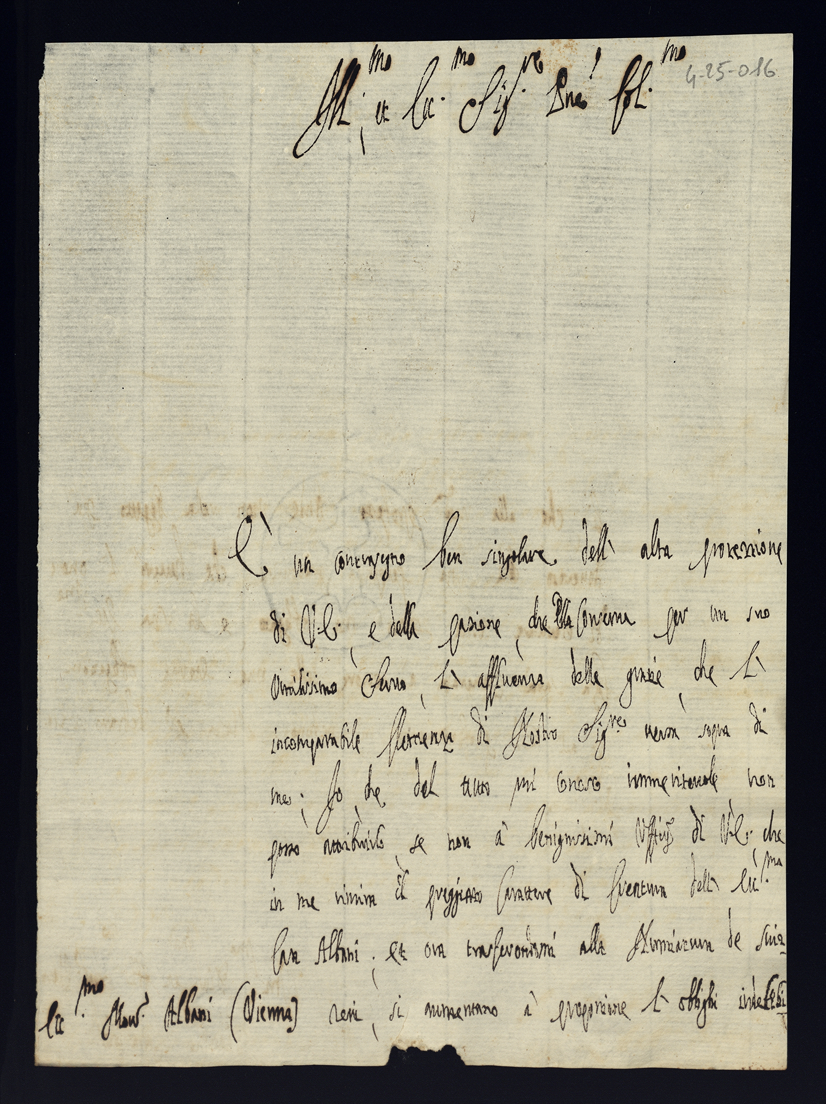 4-25-016
Ill:mo, et Ecc:mo Sig:re Pne Col:mo
È un contrasegno ben singolare dell'alta protezzione
di V.E., e della passione, che Ella Conserva per un suo
Umilissimo Servo, l'affluenza delle grazie, che l'
incomparabile Clemenza di Nostro Sig:re versa sopra di
me; Io, che del tutto mi conosco immeritevole non
posso attribuirlo, se non à benignissimi Uffizij di V.E. che
in me rimira il preggiato Carattere di Creatura dell' Ecc:ma
Casa Albani; et ora trasferendomi alla Nunziatura de Sviz-
zeri, si aumentano à proporzione l'oblighi indelebi
Ecc:mo Mons:r Albani (Vienna)